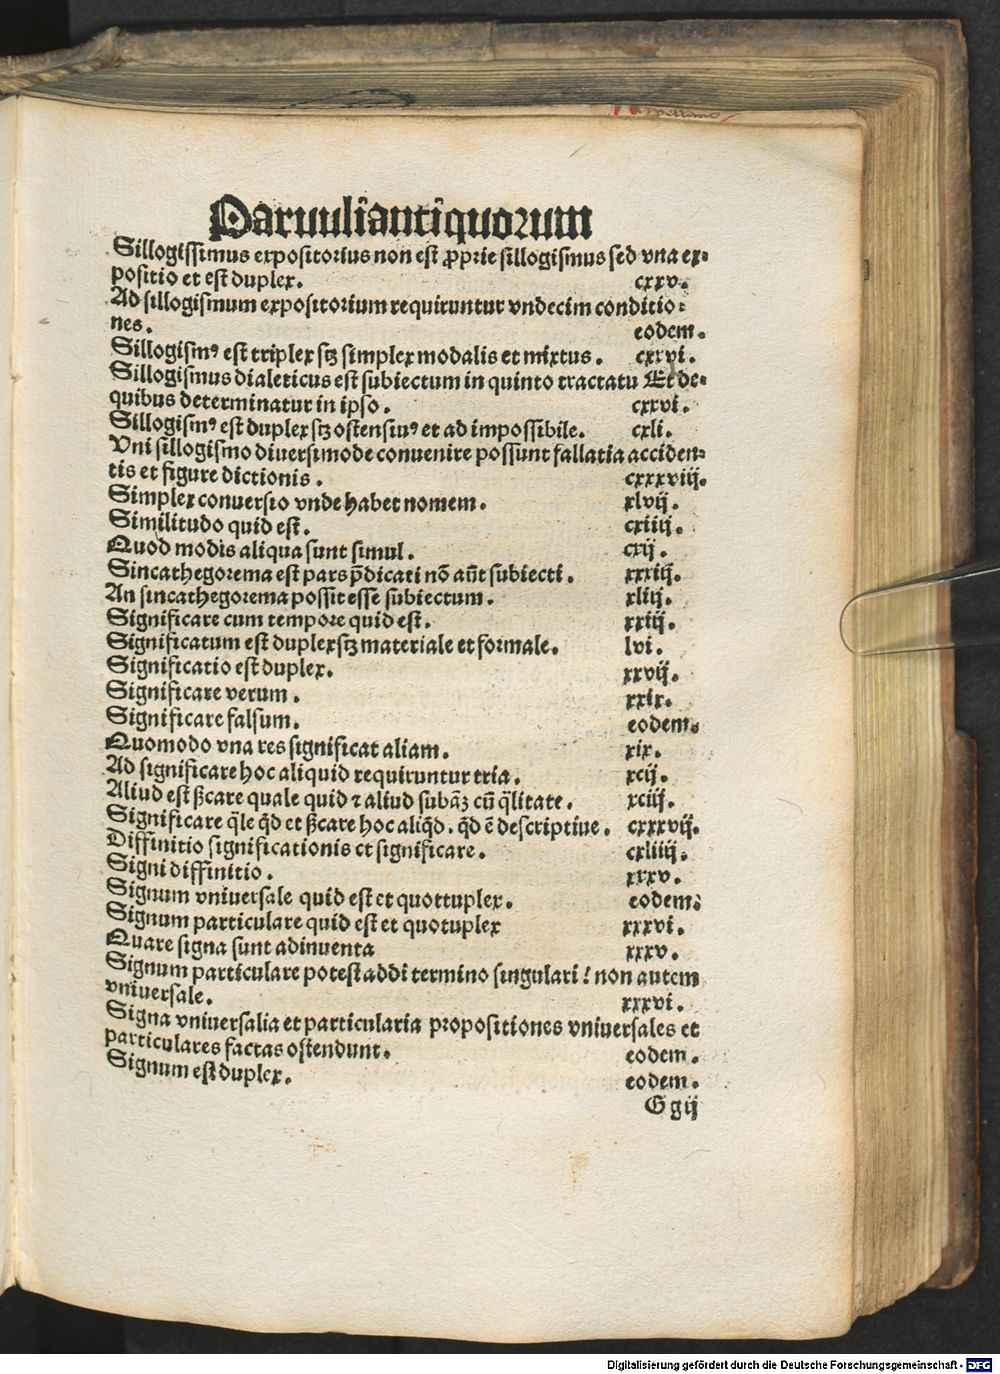 Paruuliantiquorum
Sillogissimus expositorius non est ꝓprie sillogismus sed vna ex-
positio et est duplex. cxxv.
Ad sillogismum expositorium requiruntur vndecim conditio-
nes. eodem.
Sillogismꝰ est triplex sꝫ simplex modalis et mixtus. cxxvi.
Sillogismus dialeticus est subiectum in quinto tractatu Et de-
quibus determinatur in ipso. cxxvi.
Sillogismꝰ est duplex sꝫ ostensiuꝰ et ad impossibile. cxli.
Vni sillogismo diuersimode conuenire possunt fallatia acciden-
tis et figure dictionis. cxxxviij.
Simplex conuersio vnde habet nomem. xlvij.
Similitudo quid est. cxiiij.
Quod modis aliqua sunt simul. cxij.
Sincathegorema est pars p̄dicati nō aūt subiecti. xxxiij.
An sincathegorema possit esse subiectum. xliij.
Significare cum tempore quid est. xxiij.
Significatum est duplexsꝫ materiale et formale. lvi.
Significatio est duplex. xxvij.
Significare verum. xxix.
Significare falsum. eodem.
Quomodo vna res significat aliam. xix.
Ad significare hoc aliquid requiruntur tria. xcij.
Aliud est ßcare quale quid ⁊ aliud subāꝫ cū q̄litate. xciij.
Significare q̄le q̇d et ßcare hoc aliq̇d. q̇d ē descriptiue. cxxxvij.
Diffinitio significationis et significare. cxliiij.
Signi diffinitio. xxxv.
Signum vniuersale quid est et quottuplex. eodem.
Signum particulare quid est et quotuplex xxxvi.
Quare signa sunt adinuenta xxxv.
Signum particulare potest addi termino singulari: non autem
vniuersale. xxxvi.
Signa vniuersalia et particularia propositiones vniuersales et
particulares factas ostendunt. eodem.
Signum est duplex. eodem.
G gij
Digitalisierung gefördert durch die Deutsche Forschungsgemeinschaft - DFG